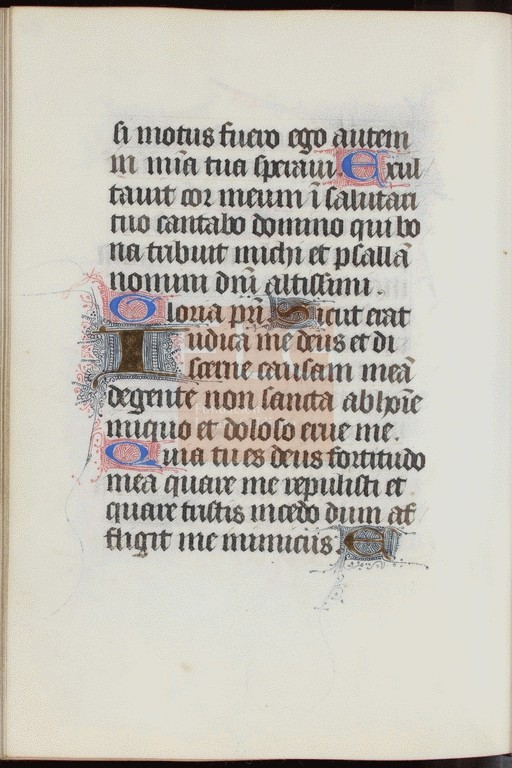 si motus fuero ego autem
in mīa tua speraui. Exul
tauit cor meum ī salutari
tuo cantabo domino qui bo
na tribuit michi et psallā
nomini dn̄i altissimi
Gloria pr̄i. Sicut erat
Iudica me deus et di
scerne causam meā
de gente non sancta ab hōīe
iniquo et doloso erue me.
Quia tu es deus fortitudo
mea quare me repulisti et
quare tristis incedo dum af
fligit me inimicus. E